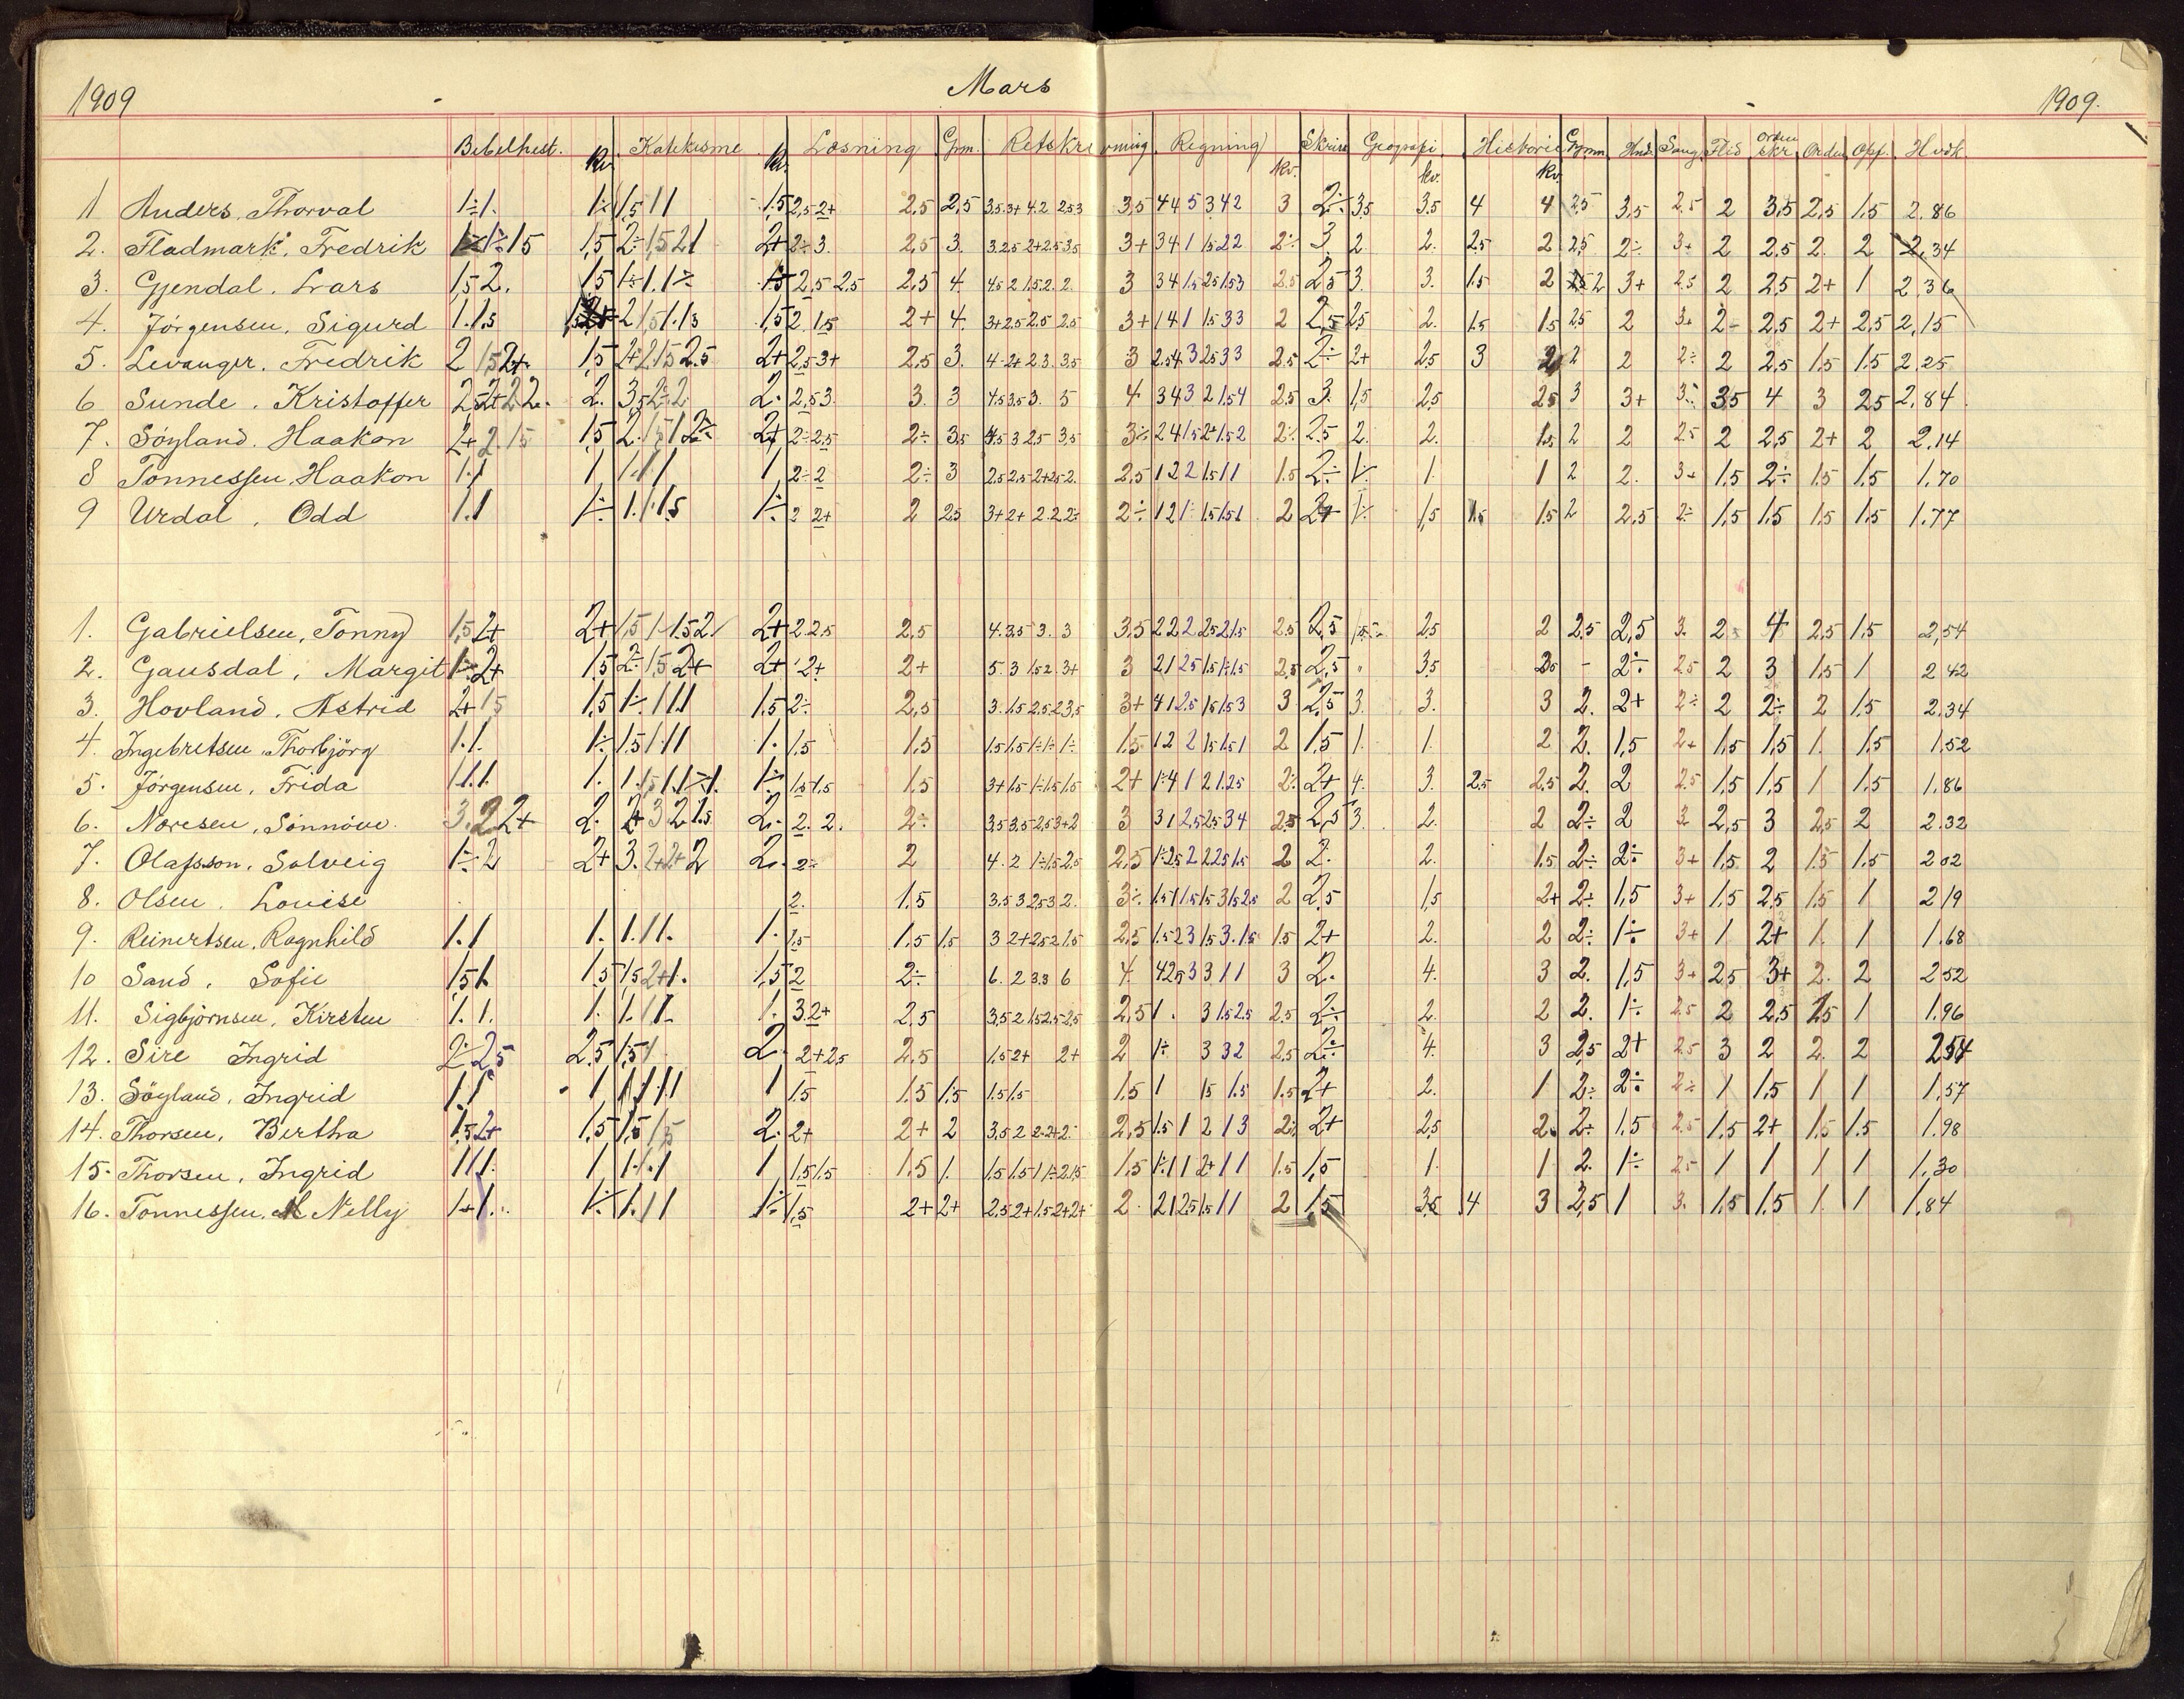 1909 Mars 1909.
Bibelhist. Kv. Katekisme Kv. Læsning Grm. Retskrivning Regning Kv. Skriv Geografi Kv. Historie Kv. Gymn. Hnd. Sang Flid Orden Skr. Orden Opf. Hvdk.
1 Anders, Thorval 1÷1. 1÷ 1,5 1 1 1.5 2,5 2+ 2,5 2,5 3.5 3+ 4.2 2.5 3 3,5 4 4 5 3 4 2 3 2÷ 3,5 3,5 4 4 2,5 3,5 2.5 2 3,5 2,5 1.5 2.86
2. Fladmark, Fredrik 1÷ 1÷ 1 5 1,5 2÷ 1,5 2 1 2+ 2÷ 3. 2,5 3. 3. 2.5 2+ 2.5 3,5 3+ 3 4 1 1.5 2 2 2÷ 3. 2. 2. 2.5 2 2,5 2÷ 3+ 2 2,5 2. 2 2,34
3. Gjendal. Lars 1,5 2. 1 5 1÷ 1. 1÷ 1.5 2,5 2.5 2,5 4. 4.5 2 1.5 2. 2. 3 3 4 1.5 2.5 1.5 3 2.5 2,5 3. 3. 1.5 2 2 3+ 2.5 2 2,5 2+ 1 2,36
4. Jörgensen, Sigurd 1. 1,5 2 1,5 1. 1,5 1,5 2. 1.5 2+ 4. 3+ 2.5 2.5 2.5 3+ 1 4 1 1.5 3 3 2 2,5 2,5 2. 1.5 1.5 2,5 2 3+ 2÷ 2,5 2+ 2,5 2,15
5. Levanger. Fredrik 2 1,5 2+. 1,5 2+ 2 1,5 2.5 2+ 2,5 3+ 2,5 3. 4 2+ 2.3. 3.5 3 2.5 4 3 2.5 3 3 2.5 2÷ 2+ 2,5 3 2 2 2 2÷ 2 2,5 1.5 1.5 2.25
6 Sunde. Kristoffer 2,5 2+ 2 2. 2. 3,5 2÷ 2 2. 2,5 3. 3. 3 4.5 3.5 3. 5 4 3 4 3 2 1.5 4 2.5 3. 1,5 2,5 2.5 3 3+ 3÷ 3,5 4 3 2,5 2,84
7. Söyland. Haakon 2+ 2. 1 5 1,5 2. 1,5 1 2÷ 2+ 2÷ 2.5 2÷ 3,5 4.5 3 2.5 3,5 3÷ 2 4 1.5 2+ 1.5 2 2÷ 2.5 2. 2. 1.5 2 2 2.5 2 2,5 2+ 2 2.14
8 Tönnessen, Haakon 1.1 1 1.1.1 1 2÷ 2 2÷ 3 2.5 2.5 2+ 2.5 2. 2,5 1 2 2 1.5 1 1 1.5 2÷ 1÷ 1. 1 2 2. 3+ 1,5 2÷ 1.5 1,5 1,70
9 Urdal, Odd 1.1 1÷ 1.1.1.5 1÷ 2 2+ 2 2.5 3+ 2+ 2.2.2÷ 2÷ 1 2 1÷ 1.5 1.5 1 2 2+ 1÷ 1,5 1.5 1.5 2 2,5 2÷ 1,5 1,5 1.5 1.5 1.77
1. Gabrielsen, Tonny 1,5 2+ 2+ 1,5 1 1.5 2. 2+ 2. 2.5 2,5 4. 3.5 3. 3 3,5 2 2 2 2.5 2 1.5 2.5 2,5 2,5 2 2,5 2,5 3. 2 4 2,5 1.5 2,54
2. Gausdal, Margit 1÷ 2+ 1.5 2÷ 1,5 2+ 2+ 2+ 2+ 5. 3 1.5 2. 3+ 3 2 1 2.5 1.5 1÷ 1.5 2,5 2,5 3,5 2,5 - 2÷ 2.5 2 3 1.5 1 2 42
3. Hovland, Astrid 2+ 1 5 1,5 1÷ 1 1.1 1,5 2÷ 2,5 3. 1.5 2.5 2 3,5 3+ 4 1 2.5 1.5 1.5 3 3 2,5 3. 3. 3 2. 2+ 2÷ 2 2÷ 2 1.5 2.34
4. Ingebretsen, Thorbjörg 1.1. 1÷ 1.5 1 1 1 1. 1.5 1.5 1.5 1.5 1÷ 1÷ 1÷ 1.5 1 2 2 1.5 1.5 1 2 1,5 1. 1. 2 2. 1,5 2+ 1,5 1,5 1. 1.5 1,52
5. Jörgensen, Frida 1.1.1. 1. 1. 1,5 1. 1÷ 1. 1÷ 1.5 1.5 1.5 3+ 1.5 1÷ 1.5 1.5 2+ 1÷ 4 1 2 1. 2.5 2÷ 2+ 4. 3. 2.5 2.5 2. 2 2.5 1,5 1,5 1 1.5 1,86
6. Noresen, Sönnöve. 3.2 2+ 2. 2+ 3 2 1.5 2. 2. 2. 2÷ 3.5 3.5 2.5 3+ 2 3 3 1 2.5 2.5 3 4 2.5 2,5 3. 2. 2 2÷ 2 3. 2,5 3 2,5 2 2.32
7. Olafsson, Solveig 1÷ 2 2+ 3. 2+ 2+ 2 2. 2÷ 2 4. 2 1÷ 1.5 2.5 2,5 1÷ 2.5 2 2 2.5 1.5 2 2. 2. 1.5 2÷ 2÷ 3+ 1,5 2 1.5 1.5 2 02
8. Olsen. Louise 2. 1.5 3.5 3 2,5 3 2. 3÷ 1.5 1 1.5 1.5 3 1.5 2.5 2 2,5 1,5 2+ 2÷ 1,5 3+ 1,5 2,5 1.5 1 2 19
9. Reinertsen, Ragnhild 1.1 1. 1.1 1. 1. 1,5 1.5 1.5 3 2+ 2.5 2 1.5 2,5 1.5 2 3 1.5 3. 1.5 1.5 2+ 2. 2 2÷ 1÷ 3+ 1 2+ 1. 1 1.68
10 Sand, Sofie 1,5 1. 1.5 1,5 2+ 1. 1,5 2 2÷ 6. 2 3.3 6 4. 4 2.5 3 3 1 1 3 2. 4. 3 2. 1,5 3+ 2,5 3+ 2. 2 2 52
11. Sigbjörnsen, Kirsten 1. 1. 1. 1.1 1. 1. 3. 2+ 2.5 3,5 2 1.5 2.5 2,5 2,5 1. 3 1.5 2.5 2.5 2÷ 2. 2 2. 1÷ 2.5 2 2,5 1,5 1 1.96
12. Sire Ingrid 2÷ 2.5 2.5 1.5 1 2. 2+ 2.5 2.5 1.5 2+ 2+ 2 1÷ 3 3 2 2,5 2÷ 4. 3 2,5 2+ 2.5 3 2 2. 2 2,54
13. Söyland, Ingrid 1.1 1 1 1 1.1 1 1.5 1.5 1.5 1.5 1.5 1.5 1 1.5 1.5 1.5 2+ 2. 1 2÷ 2÷ 2÷ 1 1,5 1 1 1,57
14. Thorsen, Bertha 1,5 2+ 1,5 1,5 1,5 2. 2+ 2+ 2 3,5 2 2 2+ 2. 2,5 1.5 1 2 1 3 2÷ 2+ 2,5 2. 2÷ 1,5 2.5 1,5 2+ 1.5 1.5 1.98
15. Thorsen, Ingrid 1 1 1. 1 1.1.1 1 1,5 1.5 1.5 1. 1.5 1.5 1 1÷ 2 1.5 1,5 1÷ 1 1 2+ 1 1 1.5 1,5 1. 1 2. 1÷ 2.5 1 1 1 1 1,30
16. Tönnessen, Nelly 1÷ 1. 1÷ 1.1 1 1÷ 1,5 2+ 2+ 2.5 2+ 1.5 2+ 2+ 2. 2 1 2.5 1.5 1 1 2 1,5 3,5 4 3 2,5 1 3. 1,5 1.5 1. 1 1,84